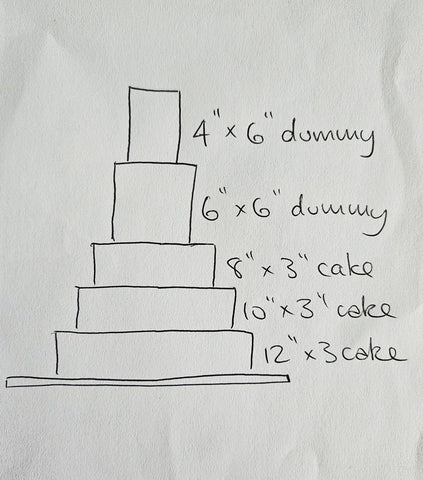 4" x 6" dummy
6" x 6" dummy
8" x 3" cake
10" x 3" cake
12" x 3 cake